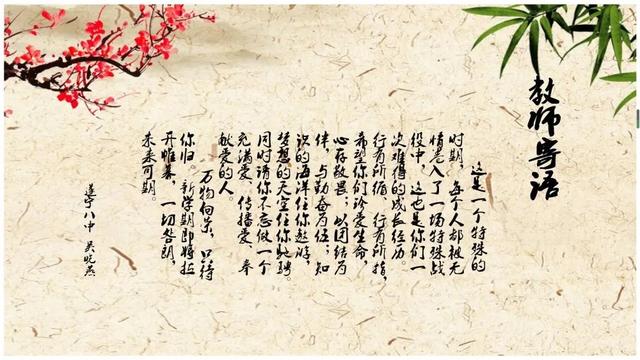 教师寄语
这是一个特殊的
时期，每个人都被无
情卷入了一场特殊战
役中，这也是你们一
次难得的成长经历。
行有所循，行有所指，
希望你们珍爱生命，
心存敬畏；以团结为
伴，与勤奋为伍；知
识的海洋任你遨游，
梦想的天空任你驰骋。
同时请你不忘做一个
充满爱、传播爱、奉
献爱的人。
万物向荣，只待
你归。新学期即将拉
开帷幕，一切
未来可期。
遂宁八中 吴晓燕